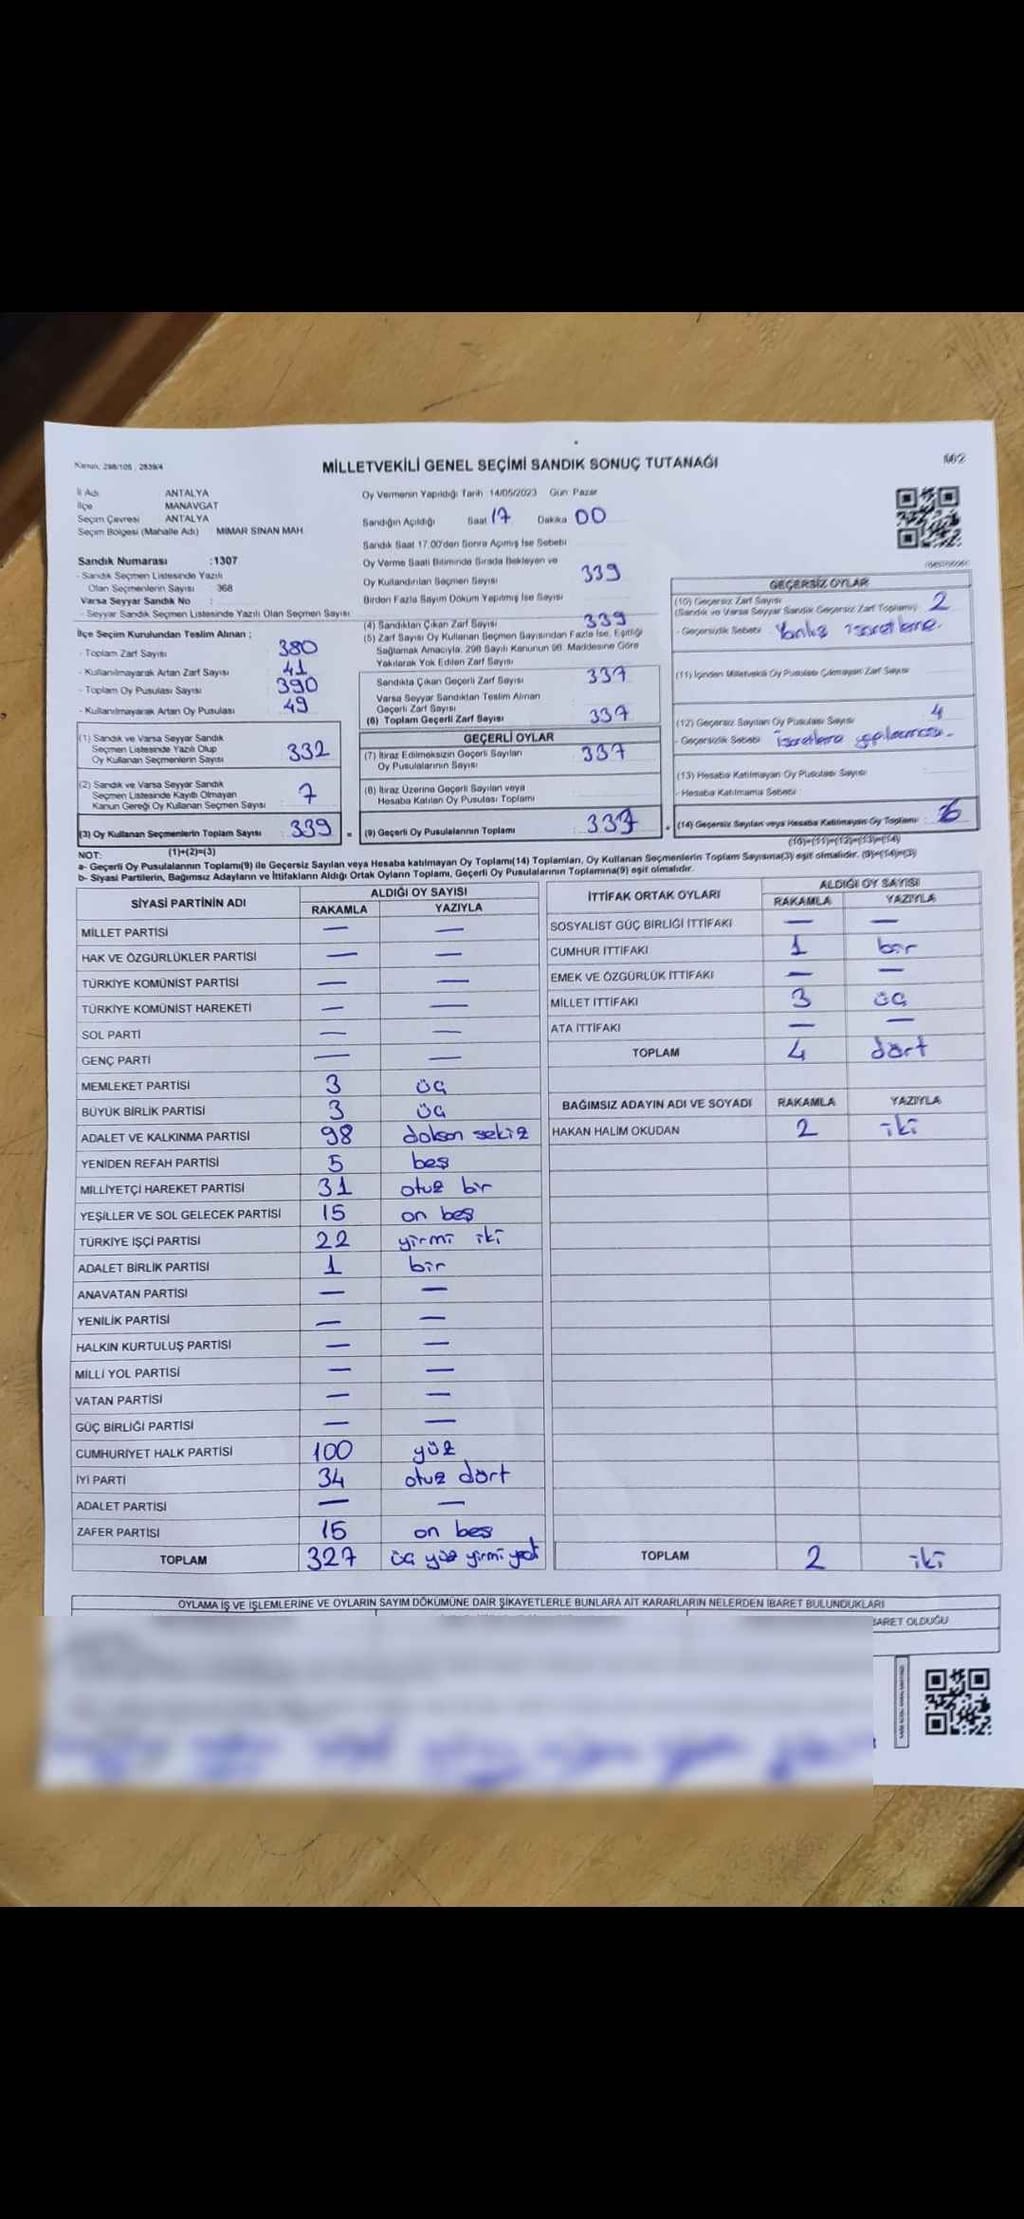 Kanun, 298/105 , 2839/4
MİLLETVEKİLİ GENEL SEÇİMİ SANDIK SONUÇ TUTANAĞI
İl Adı ANTALYA
İlçe MANAVGAT
Seçim Çevresi ANTALYA
Seçim Bölgesi (Mahalle Adı) MİMAR SİNAN MAH
Sandık Numarası :1307
- Sandık Seçmen Listesinde Yazılı
Olan Seçmenlerin Sayısı 368
Varsa Seyyar Sandık No :
- Seyyar Sandık Seçmen Listesinde Yazılı Olan Seçmen Sayısı
İlçe Seçim Kurulundan Teslim Alınan ;
- Toplam Zarf Sayısı 380
- Kullanılmayarak Artan Zarf Sayısı 41
- Toplam Oy Pusulası Sayısı 390
- Kullanılmayarak Artan Oy Pusulası 49
(1) Sandık ve Varsa Seyyar Sandık
Seçmen Listesinde Yazılı Olup
Oy Kullanan Seçmenlerin Sayısı 332
(2) Sandık ve Varsa Seyyar Sandık
Seçmen Listesinde Kayıtlı Olmayan
Kanun Gereği Oy Kullanan Seçmen Sayısı : 7
(3) Oy Kullanan Seçmenlerin Toplam Sayısı : 339 =
(1)+(2)=(3)
Oy Vermenin Yapıldığı Tarih 14/05/2023 Gün: Pazar
Sandığın Açıldığı Saat 17 Dakika 00
Sandık Saat 17.00'den Sonra Açılmış İse Sebebi
Oy Verme Saati Bitiminde Sırada Bekleyen ve
Oy Kullandırılan Seçmen Sayısı 339
Birden Fazla Sayım Döküm Yapılmış İse Sayısı
(4) Sandıktan Çıkan Zarf Sayısı 339
(5) Zarf Sayısı Oy Kullanan Seçmen Sayısından Fazla İse, Eşitliği
Sağlamak Amacıyla, 298 Sayılı Kanunun 98. Maddesine Göre
Yakılarak Yok Edilen Zarf Sayısı
Sandıkta Çıkan Geçerli Zarf Sayısı 337
Varsa Seyyar Sandıktan Teslim Alınan
Geçerli Zarf Sayısı
(6) Toplam Geçerli Zarf Sayısı 337
GEÇERLİ OYLAR
(7) İtiraz Edilmeksizin Geçerli Sayılan
Oy Pusulalarının Sayısı 337
(8) İtiraz Üzerine Geçerli Sayılan veya
Hesaba Katılan Oy Pusulası Toplamı
(9) Geçerli Oy Pusulalarının Toplamı : 333
GEÇERSİZ OYLAR
(10) Geçersiz Zarf Sayısı 2
(Sandık ve Varsa Seyyar Sandık Geçersiz Zarf Toplamı)
- Geçersizlik Sebebi Yanlış işaretleme.
(11) İçinden Milletvekili Oy Pusulası Çıkmayan Zarf Sayısı
(12) Geçersiz Sayılan Oy Pusulası Sayısı 4
- Geçersizlik Sebebi İşaretleme yapılmaması.
(13) Hesaba Katılmayan Oy Pusulası Sayısı
- Hesaba Katılmama Sebebi
(14) Geçersiz Sayılan veya Hesaba Katılmayan Oy Toplamı : 6
(10)+(11)+(12)+(13)=(14)
NOT:
a- Geçerli Oy Pusulalarının Toplamı(9) ile Geçersiz Sayılan veya Hesaba katılmayan Oy Toplamı(14) Toplamları, Oy Kullanan Seçmenlerin Toplam Sayısına(3) eşit olmalıdır. (9)+(14)=(3)
b- Siyasi Partilerin, Bağımsız Adayların ve İttifakların Aldığı Ortak Oyların Toplamı, Geçerli Oy Pusulalarının Toplamına(9) eşit olmalıdır.
SİYASİ PARTİNİN ADI ALDIĞI OY SAYISI
RAKAMLA YAZIYLA
MİLLET PARTİSİ — —
HAK VE ÖZGÜRLÜKLER PARTİSİ — —
TÜRKİYE KOMÜNİST PARTİSİ — —
TÜRKİYE KOMÜNİST HAREKETİ — —
SOL PARTİ — —
GENÇ PARTİ — —
MEMLEKET PARTİSİ 3 üç
BÜYÜK BİRLİK PARTİSİ 3 üç
ADALET VE KALKINMA PARTİSİ 98 doksan sekiz
YENİDEN REFAH PARTİSİ 5 beş
MİLLİYETÇİ HAREKET PARTİSİ 31 otuz bir
YEŞİLLER VE SOL GELECEK PARTİSİ 15 on beş
TÜRKİYE İŞÇİ PARTİSİ 22 yirmi iki
ADALET BİRLİK PARTİSİ 1 bir
ANAVATAN PARTİSİ — —
YENİLİK PARTİSİ — —
HALKIN KURTULUŞ PARTİSİ — —
MİLLİ YOL PARTİSİ — —
VATAN PARTİSİ — —
GÜÇ BİRLİĞİ PARTİSİ — —
CUMHURİYET HALK PARTİSİ 100 yüz
İYİ PARTİ 34 otuz dört
ADALET PARTİSİ — —
ZAFER PARTİSİ 15 on beş
TOPLAM 327 üç yüz yirmi yedi
İTTİFAK ORTAK OYLARI ALDIĞI OY SAYISI
RAKAMLA YAZIYLA
SOSYALİST GÜÇ BİRLİĞİ İTTİFAKI — —
CUMHUR İTTİFAKI 1 bir
EMEK VE ÖZGÜRLÜK İTTİFAKI — —
MİLLET İTTİFAKI 3 üç
ATA İTTİFAKI — —
TOPLAM 4 dört
BAĞIMSIZ ADAYIN ADI VE SOYADI RAKAMLA YAZIYLA
HAKAN HALİM OKUDAN 2 iki
TOPLAM 2 iki
OYLAMA İŞ VE İŞLEMLERİNE VE OYLARIN SAYIM DÖKÜMÜNE DAİR ŞİKAYETLERLE BUNLARA AİT KARARLARIN NELERDEN İBARET BULUNDUKLARI
BARET OLDUĞU